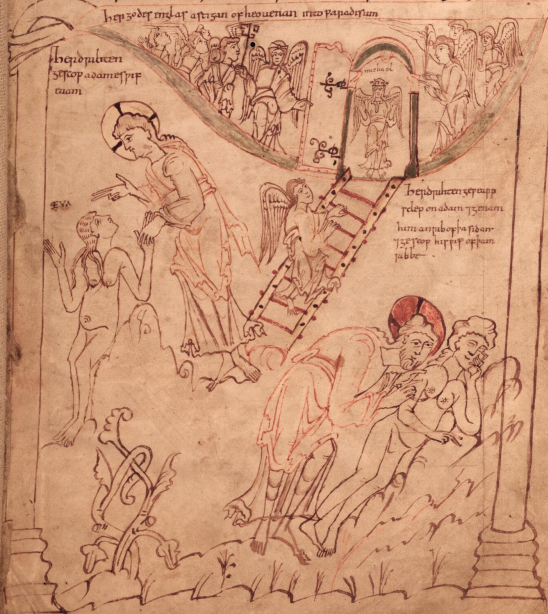 her godes englas astigan of heouenan into paradisum
her drihten
gescop adames ƿif
euam
michael
EVA
her drihten geƿearp
sclep on adam ⁊ genam
him an rib of þa sidan
⁊ gescop his ƿif of þam
ribbe